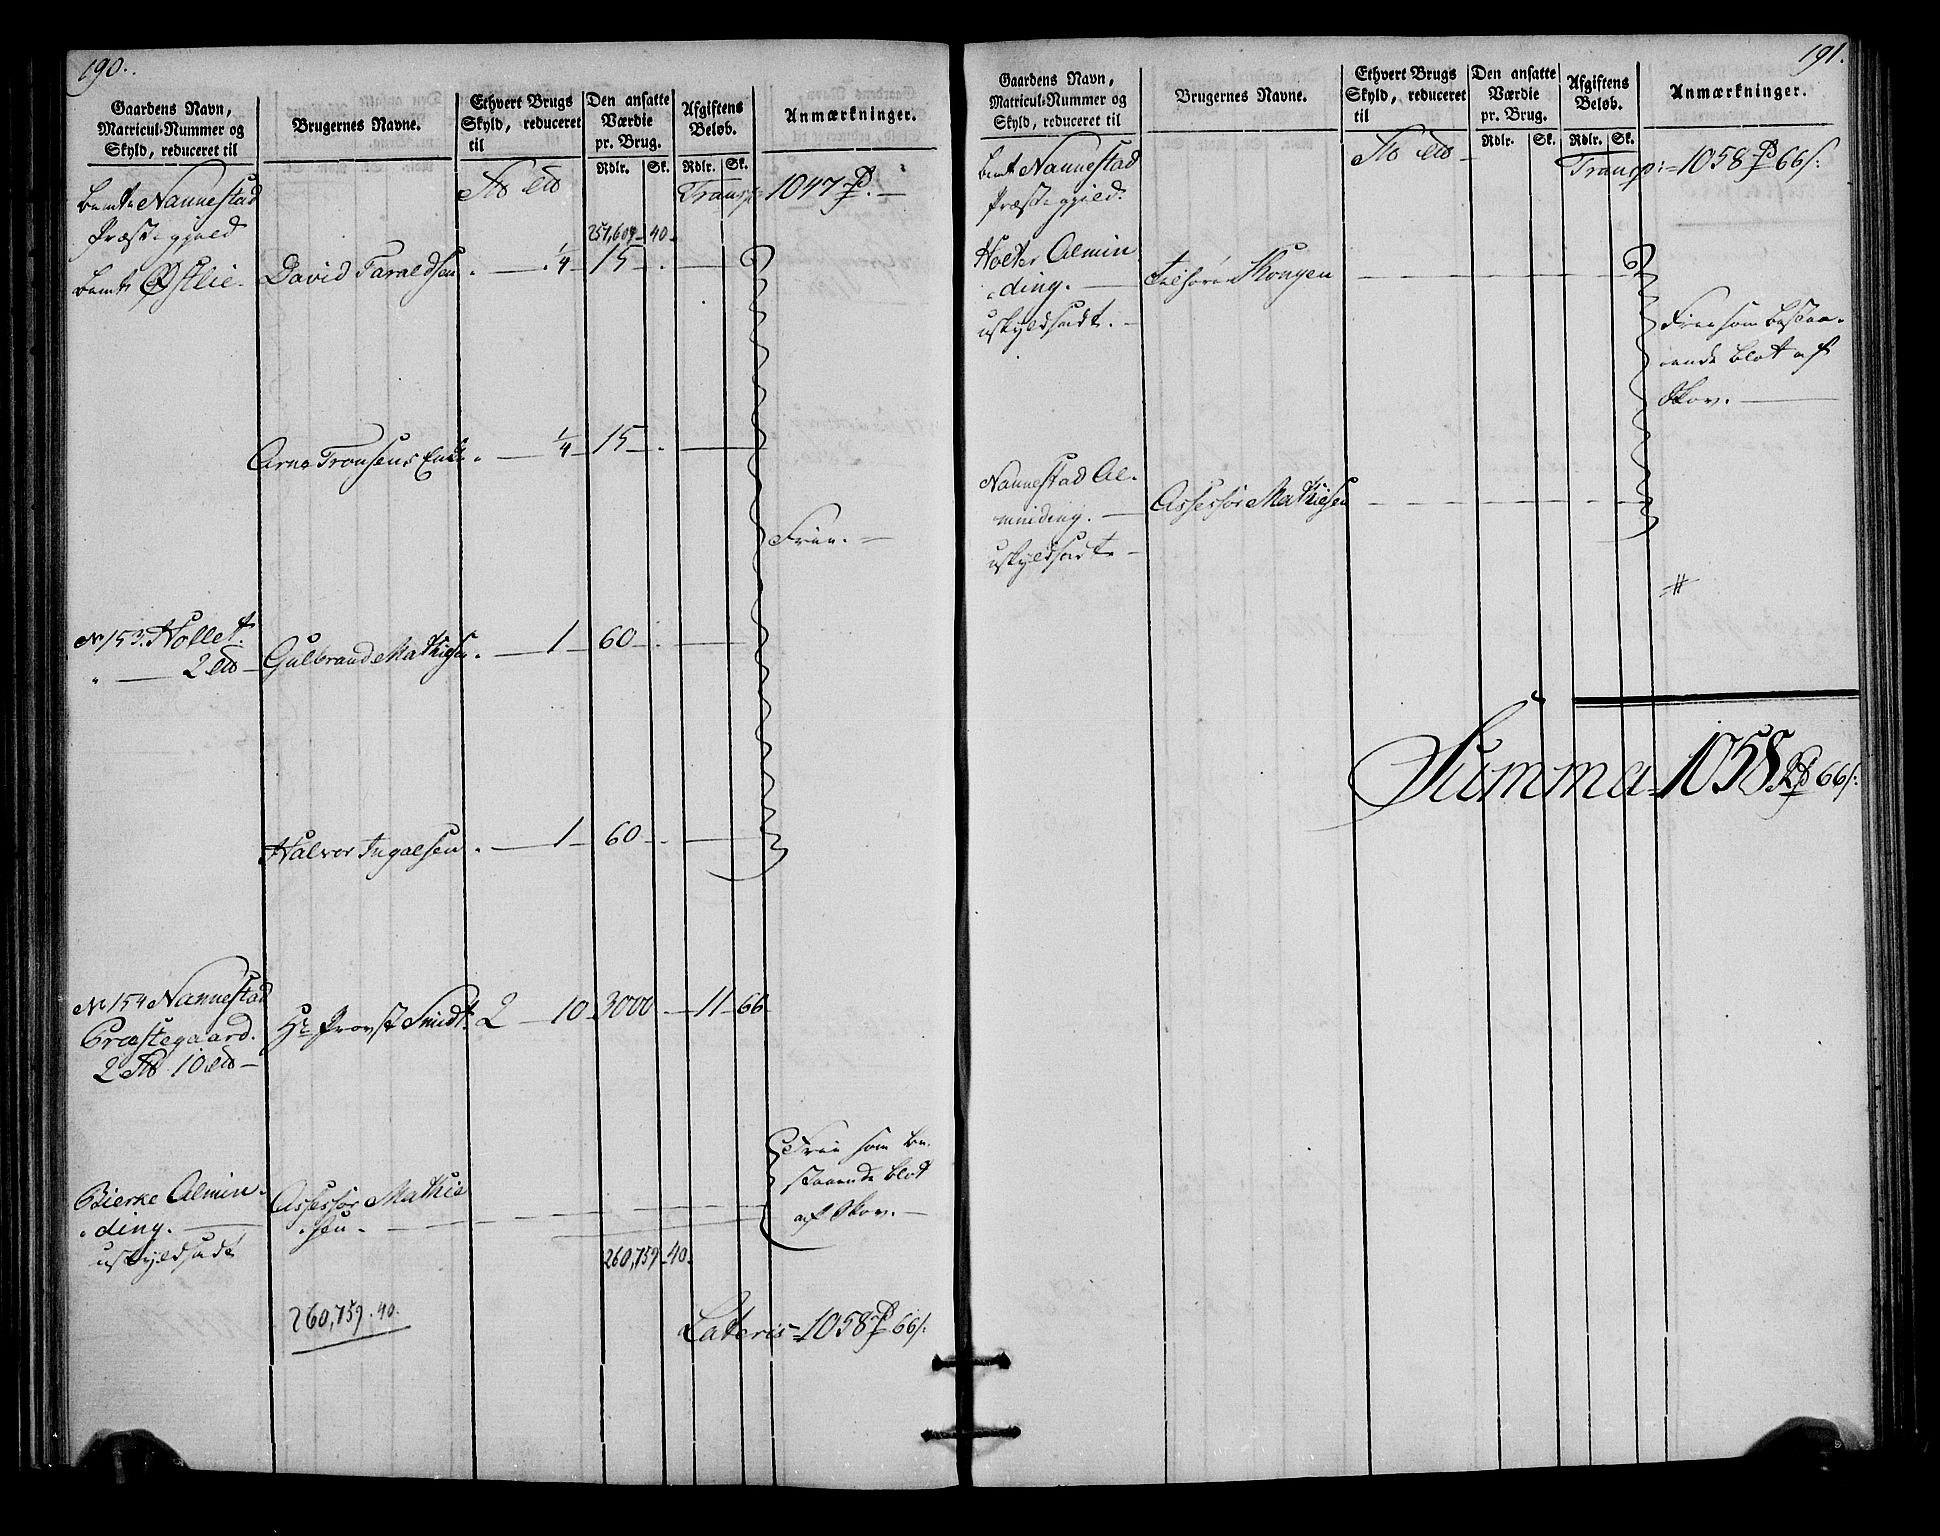 190.
Gaardens Navn,
Matricul-Nummer og
Skyld, reduceret til
Brugernes Navne.
Ethvert Brugs
Skyld, reduceret
til
Den ansatte
Værdie
pr. Brug.
Rdlr. Sk.
Afgiftens
Beløb.
Rdlr. Sk.
Anmærkninger.
bemte Nannestad
Præstegjeld
Transp: 1047
257,609 - 40 -
bemte Østlie. David Taraldsen . — 1/4 15 - . —
Arne Tronsens Enke . — 1/4 15 - . —
Friee. —
No 153. Hollet.
" — 2 Gulbrand Mathiesen . — 1 60 - . —
Halvor Ingalsen . — 1 60 - . —
No 154 Nannestad
Præstegaard.
2 10 —
Hr Provst Smidt. 2 — 10 - 3000 - — 11 - 66
Bierke Almin-
ding. —
uskyldsadt
Assessor Mathie
sen -
Friee som be-
staaende blot
af Skov. —
260,759 - 40 -
260,759 . 40.
Lateris = 1058 66/:
191.
Gaardens Navn,
Matricul-Nummer og
Skyld, reduceret til
Brugernes Navne.
Ethvert Brugs
Skyld, reduceret
til
Den ansatte
Værdie
pr. Brug.
Rdlr. Sk.
Afgiftens
Beløb.
Rdlr. Sk.
Anmærkninger.
bemt Nannestad
Præstegjeld.
Transp: = 1058 66/:
Holter Almin
ding. —
uskyldsadt. —
Tilhører Kongen
Friee som bestaa-
ende blot af
Skov. —
Nannestad Al-
minding. —
uskyldsadt —
Assessor Mathiesen
Summa = 1058 66/: